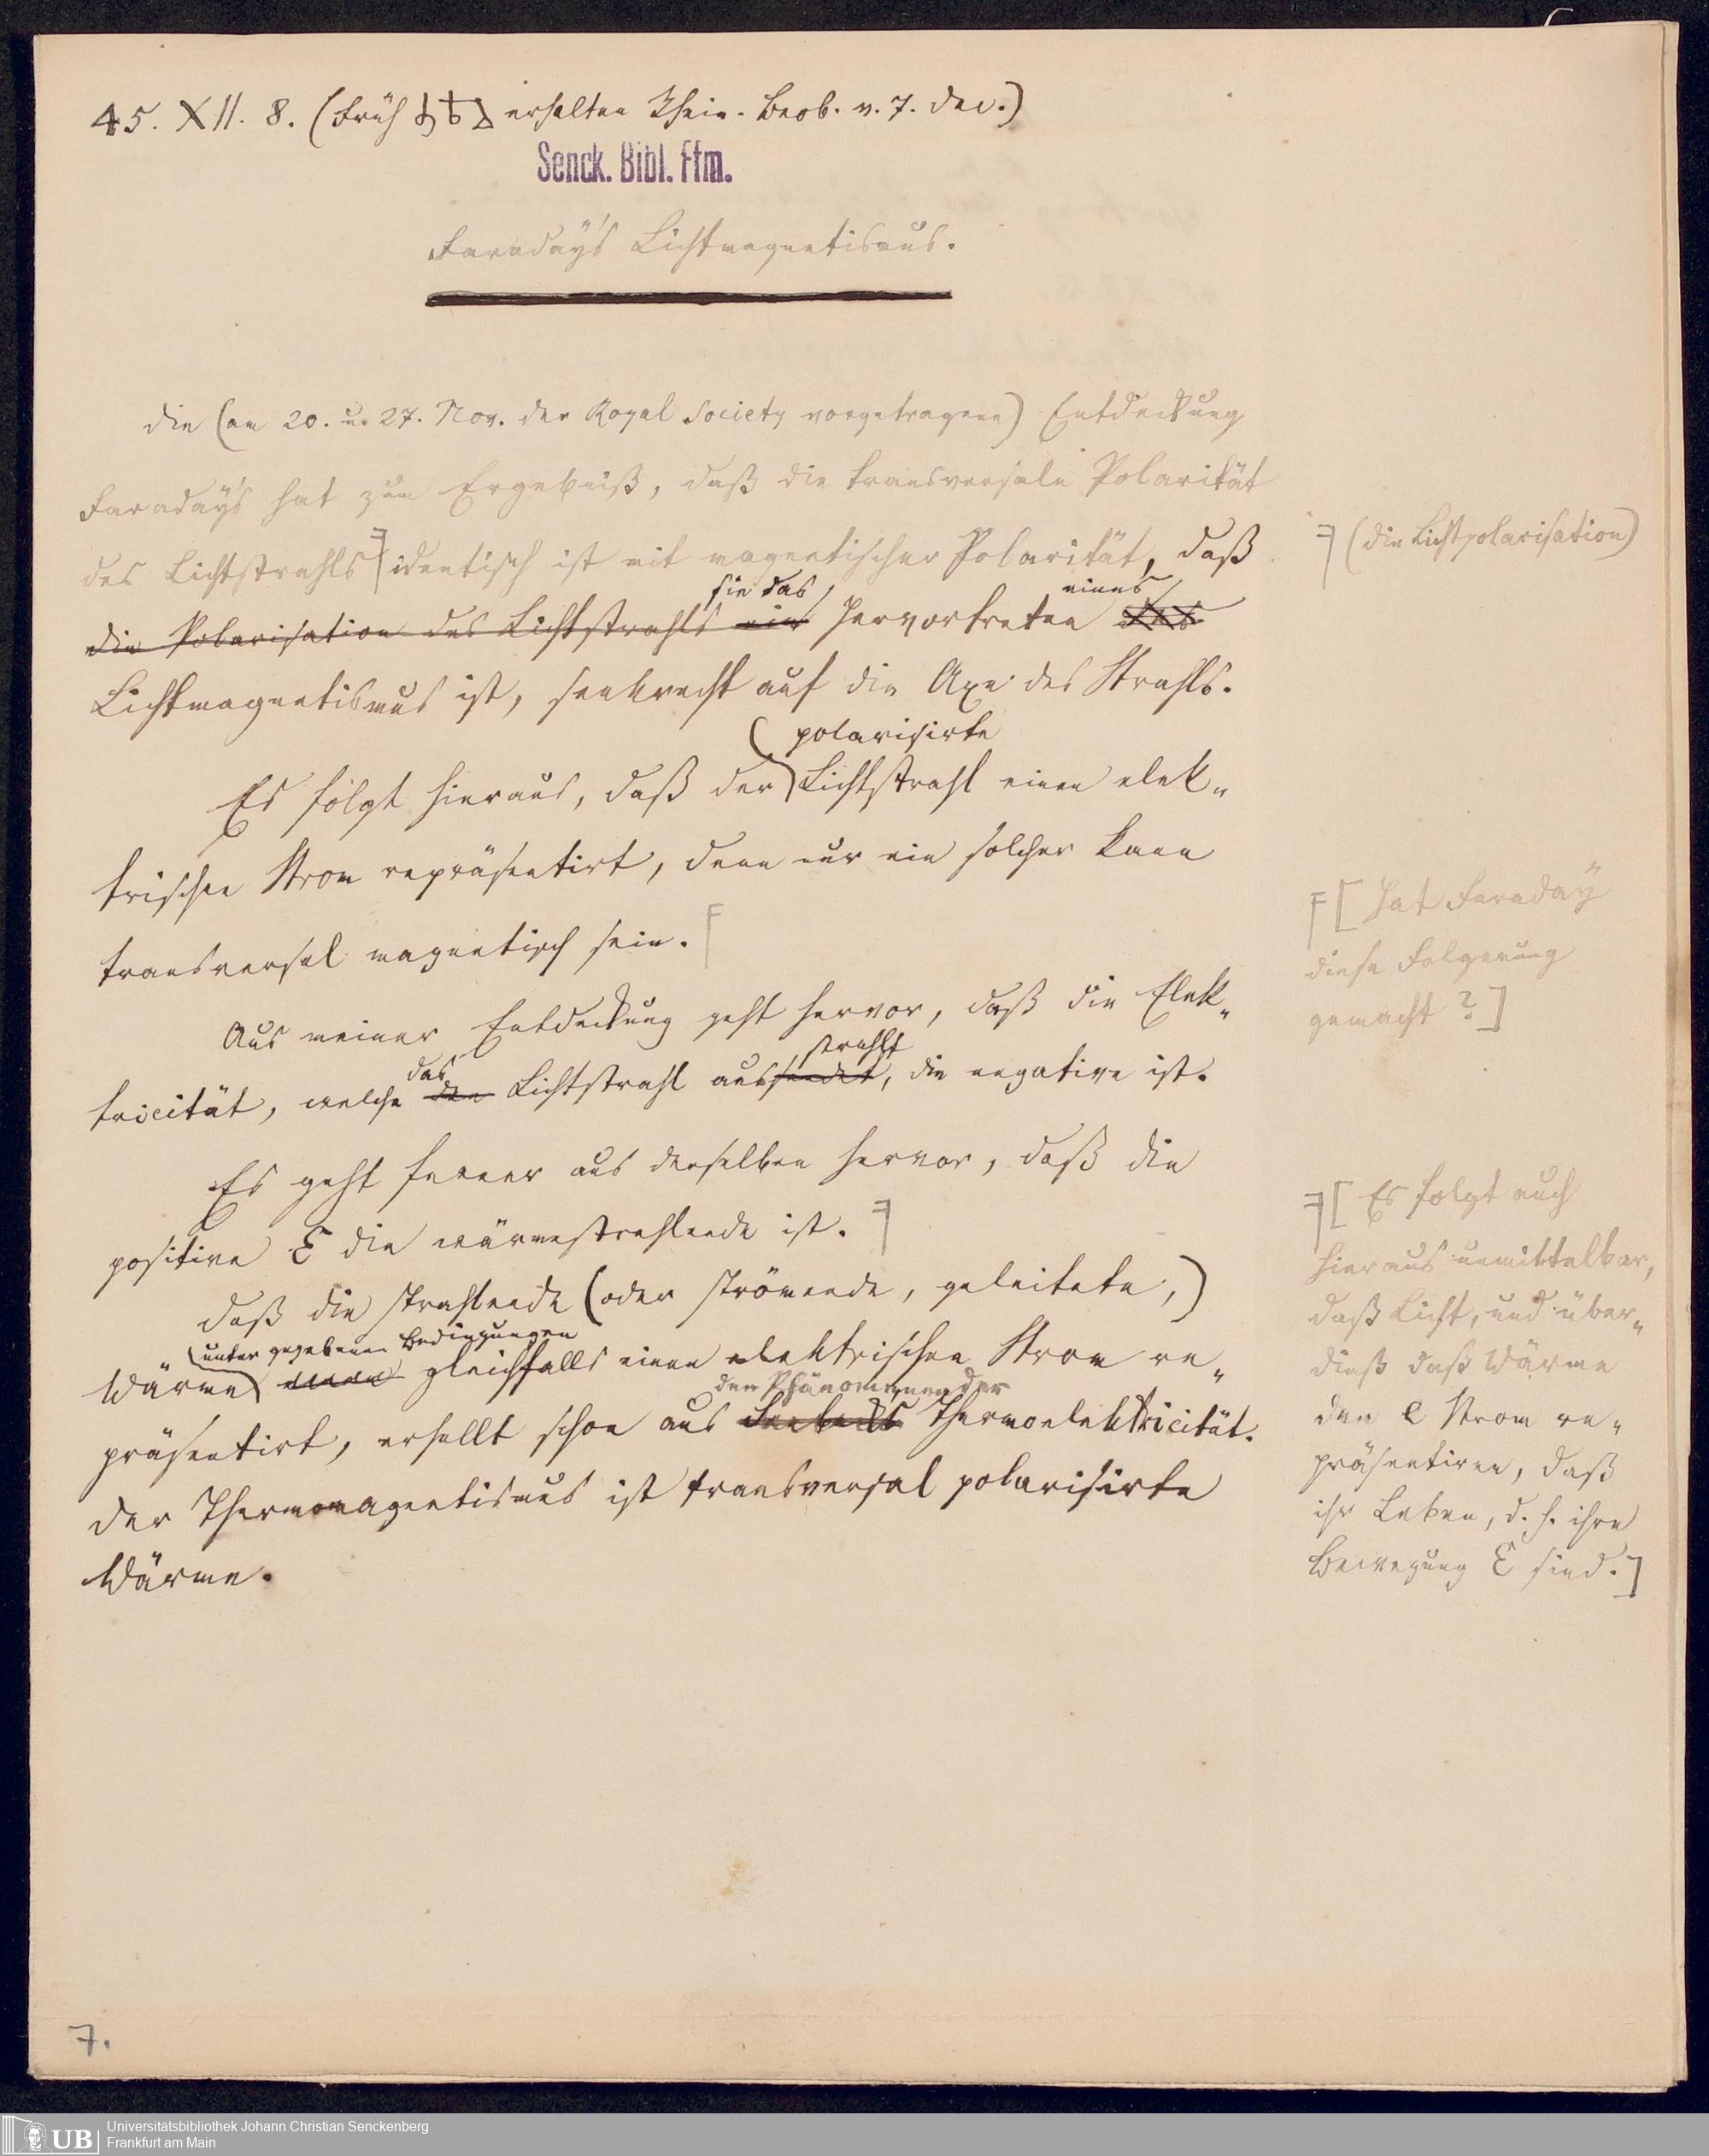 45. XII. 8. (Früh erhalten Rhein. Beob. v. 7. Dec.)
Senck. Bibl. Ffm.
Faraday's Lichtmagnetismus.
Die (am 20. u. 27. Nov. der Royal Society vorgetragene) Entdeckung
Faraday's hat zum Ergebniß, daß die transversale Polarität
des Lichtstrahls identisch ist mit magnetischer Polarität, daß
(die Lichtpolarisation)
sie das eines
die Polarisation des Lichtstrahls ein Hervortreten des
Lichtmagnetismus ist, senkrecht auf die Axe des Strahls.
polarisirte
Es folgt hieraus, daß der Lichtstrahl einen elek-
trischen Strom repräsentirt, denn nur ein solcher kann
transversal magnetisch sein.
[Hat Faraday
diese Folgerung
gemacht?]
Aus meiner Entdeckung geht hervor, daß die Elek-
das strahlt
tricität, welche den Lichtstrahl aussendet, die negative ist.
Es geht ferner aus derselben hervor, daß die
positive E die wärmestrahlende ist.
[Es folgt auch
hieraus unmittelbar,
daß Licht, und über-
dieß daß Wärme
den e Strom re-
präsentiren, daß
ihr Leben, d. h. ihre
Bewegung E sind.]
Daß die strahlende (oder strömende, geleitete,)
unter gegebenen Bedingungen
Wärme gleichfalls einen elektrischen Strom re-
den Phänomenen der
präsentirt, erhellt schon aus Seebecks Thermoelektricität.
Der Thermomagnetismus ist transversal polarisirte
Wärme.
7.
UB
Universitätsbibliothek Johann Christian Senckenberg
Frankfurt am Main